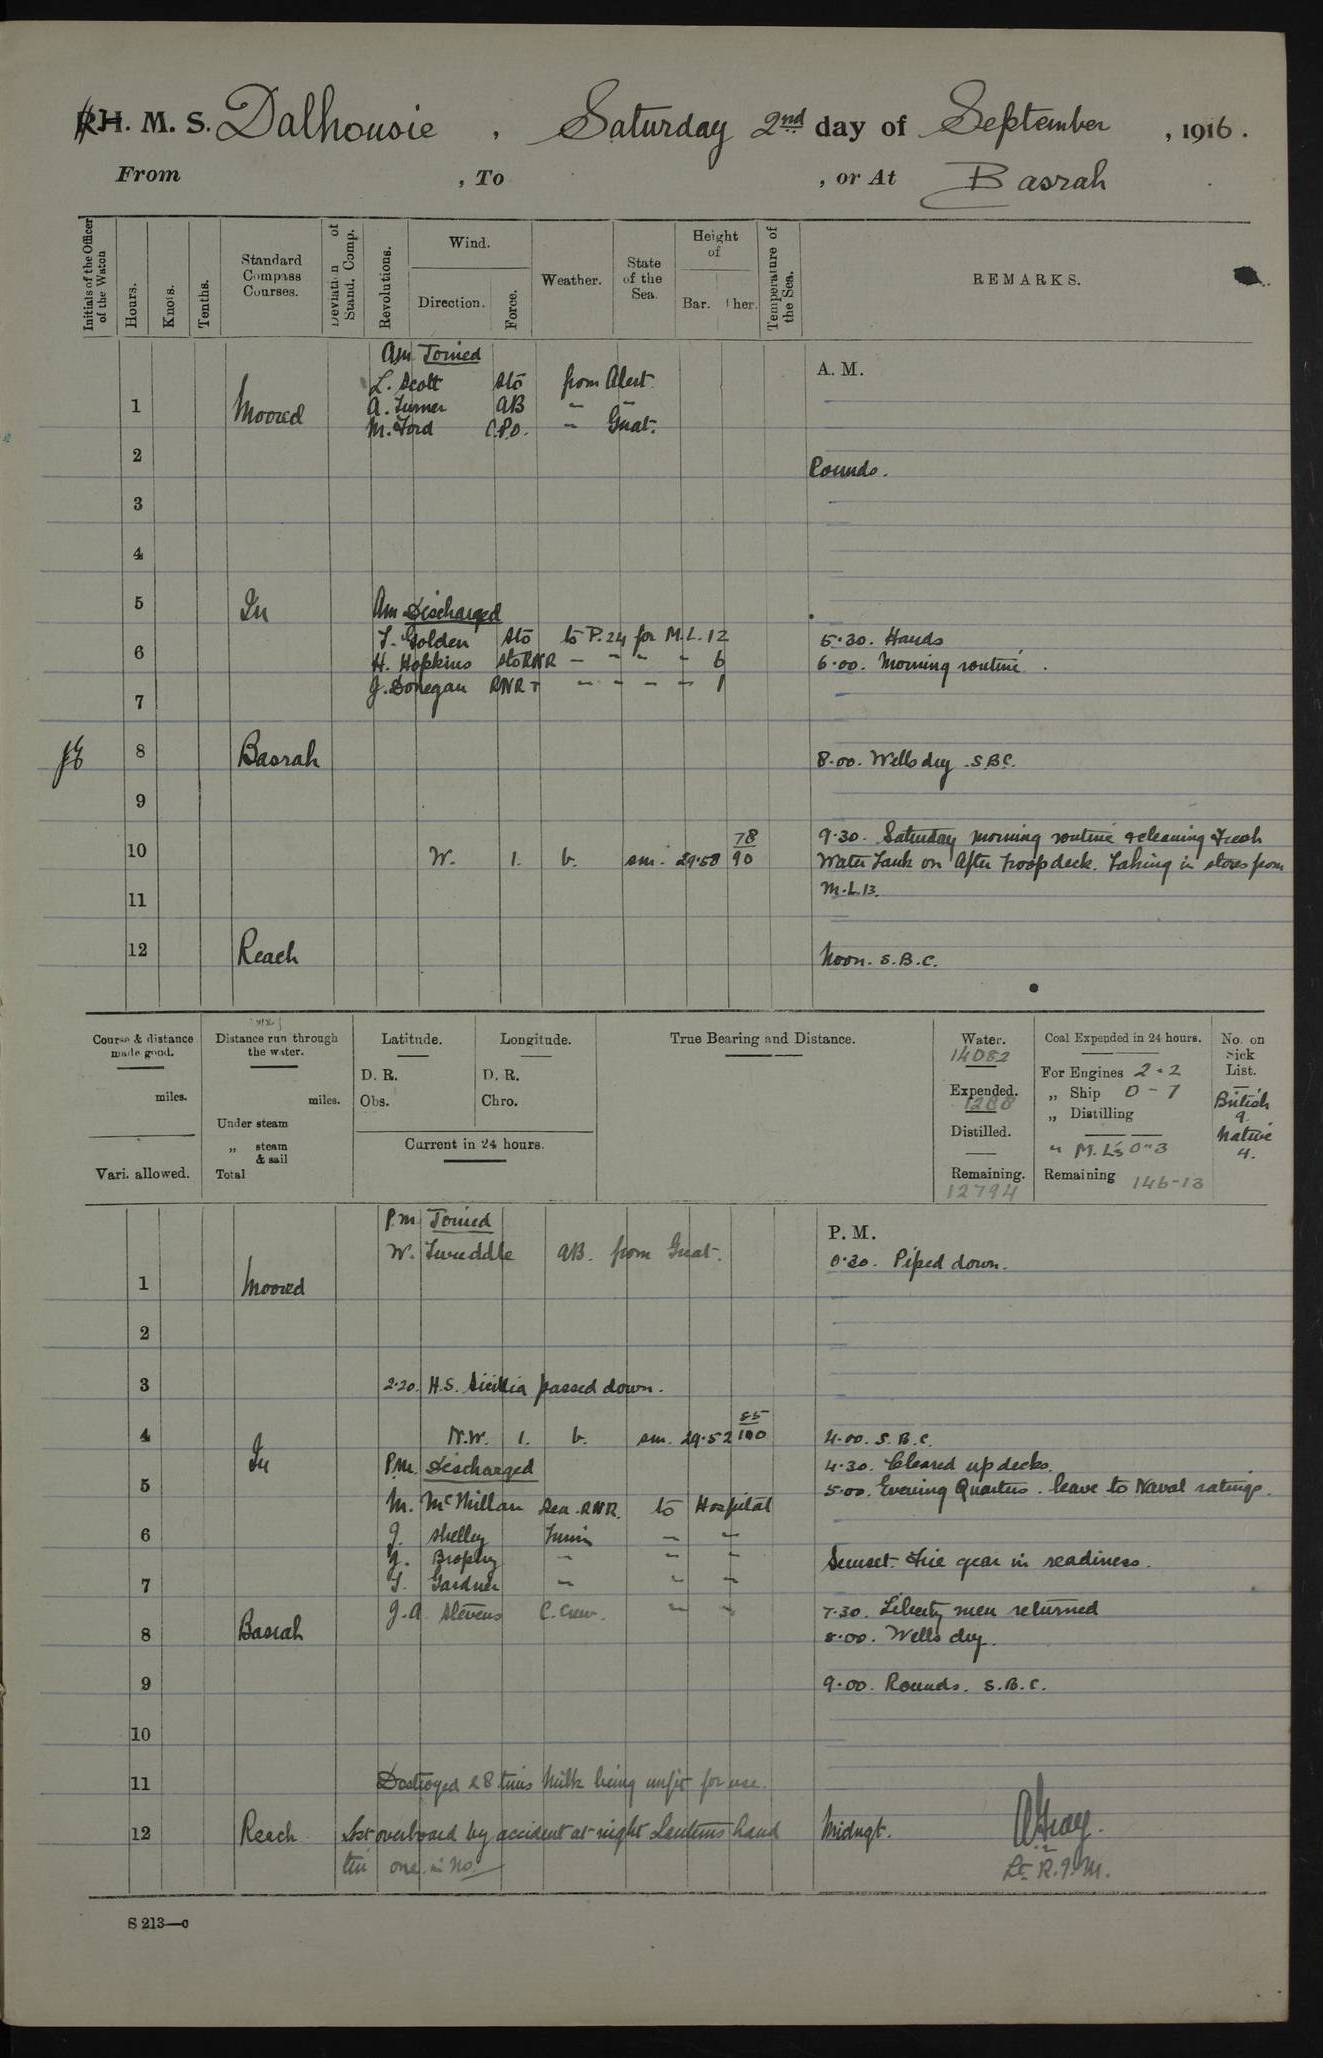 R.H. M. S. Dalhousie, Saturday 2nd day of September, 1916.
From , To , or At Basrah
Initials of the Officer of the Watch
Hours.
Knots.
Tenths.
Standard Compass Courses.
Deviation of Stand. Comp.
Revolutions.
Wind.
Direction.
Force.
Weather.
State of the Sea.
Height of
Bar. Ther.
Temperature of the Sea.
REMARKS.
Am Joined
A. M.
L. Scott Sto from Alert
1 Moored A. Turner AB " "
M. Ford C.P.O. " Gnat.
2 Rounds.
3
4
5 In Am Discharged
T. Golden Sto to P.24 for M.L. 12 5.30. Hands
6 H. Hopkins Sto RNR " " " " 6 6.00. Morning routine.
J. Donegan RNR T " " " " 1
7
8 Basrah 8.00. Wells dry. S.B.C.
9
78 9.30. Saturday morning routine & cleaning Fresh
10 W. 1. b. sm. 29.58 90 Water Tank on After troop deck. Taking in stores from
11 M.L.13.
12 Reach Noon. S.B.C.
Course & distance made good.
miles.
Vari. allowed.
Distance run through the water.
miles.
Under steam
„ steam & sail
Total
Latitude.
D. R.
Obs.
Longitude.
D. R.
Chro.
Current in 24 hours.
True Bearing and Distance.
Water.
14082
Expended.
1288
Distilled.
Remaining.
12794
Coal Expended in 24 hours.
For Engines 2-2
„ Ship 0-7
„ Distilling
" M.L's 0-3
Remaining 146-13
No. on Sick List.
British
9.
Native
4.
P.m. Joined
P. M.
W. Tweddle AB. from Gnat. 0.30. Piped down.
1 Moored
2
3 2.20. H.S. Sicilia passed down.
85
4 N.W. 1. b. sm. 29.52 100 4.00. S.B.C.
In P.M. Discharged 4.30. Cleared up decks.
5 M. McMillan Sea. RNR. to Hospital 5.00. Evening Quarters. leave to Naval ratings.
6 J. Shelley " "
J. Brophy " " " Sunset. Fire gear in readiness.
7 T. Gardner " " "
J.A. Stevens C. Crew. " " 7.30. Liberty men returned
8 Basrah 8.00. Wells dry.
9 9.00. Rounds. S.B.C.
10
11 Destroyed 28 tins Milk being unfit for use.
12 Reach Lost overboard by accident at night Lanterns hand Midngt. A Gray.
tin one in No. Lt. R.I.M.
S 213—c